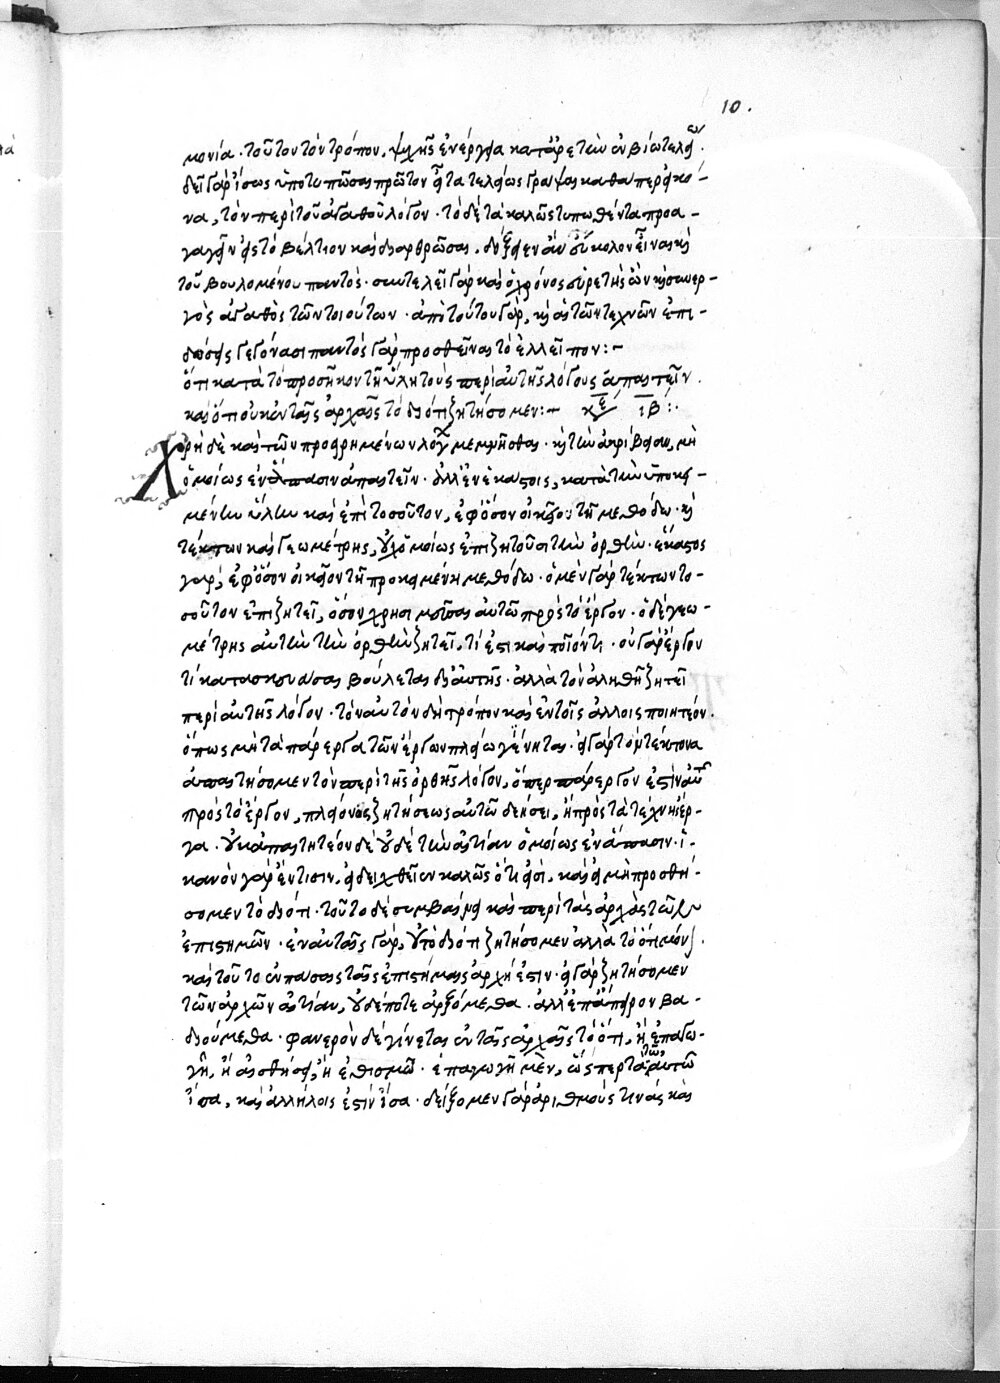 10.
μονία · τοῦτον τὸν τρόπον, ψυχῆς ἐνέργεια κατ' ἀρετὴν ἐν βίῳ τελείῳ.
δεῖ γὰρ ἴσως ὑποτυπῶσαι πρῶτον εἶτα τελείως γράψαι καθάπερ εἰκό-
να, τὸν περὶ τοῦ ἀγαθοῦ λόγον · τὸ δὲ τὰ καλῶς τυπωθέντα προα-
γαγεῖν εἰς τὸ βέλτιον καὶ διαρθρῶσαι, δόξειεν ἂν εὔκολον εἶναι καὶ
τοῦ βουλομένου παντός · συντελεῖ γὰρ καὶ ὁ χρόνος εὑρετὴς ὢν καὶ συνερ-
γὸς ἀγαθὸς τῶν τοιούτων · ἀπὸ τούτου γὰρ, καὶ αἱ τῶν τεχνῶν ἐπι-
δόσεις γεγόνασι παντὸς γὰρ προσθεῖναι τὸ ἐλλεῖπον :-
ὅτι κατὰ τὸ προσῆκον τῇ ὕλῃ τοὺς περὶ αὐτῆς λόγους ἀπαιτεῖν.
καὶ ὅτι οὐκ ἐν ταῖς ἀρχαῖς τὸ διότι ζητήσομεν :- κεφ ιβ :·
Χρὴ δὲ καὶ τῶν προειρημένων λόγων μεμνῆσθαι · καὶ τὴν ἀκρίβειαν, μὴ
ὁμοίως ἐν ἅπασιν ἀπαιτεῖν · ἀλλ' ἐν ἑκάστοις, κατὰ τὴν ὑποκει-
μένην ὕλην καὶ ἐπὶ τοσοῦτον, ἐφ' ὅσον οἰκεῖον τῇ μεθόδῳ · καὶ
τέκτων καὶ γεωμέτρης, οὐχ ὁμοίως ἐπιζητοῦσι τὴν ὀρθήν · ἕκαστος
γὰρ, ἐφ' ὅσον οἰκεῖον τῇ προκειμένῃ μεθόδῳ · ὁ μὲν γὰρ τέκτων το-
σοῦτον ἐπιζητεῖ, ὅσον χρησιμεῦσαι αὐτῷ πρὸς τὸ ἔργον · ὁ δὲ γεω-
μέτρης αὐτὴν τὴν ὀρθὴν ζητεῖ, τί ἐστι καὶ ποῖόν τι · οὐ γὰρ ἔργον
τί κατασκευάσαι βούλεται δι' αὐτῆς · ἀλλὰ τὸν ἀληθῆ ζητεῖ
περὶ αὐτῆς λόγον · τὸν αὐτὸν δὴ τρόπον καὶ ἐν τοῖς ἄλλοις ποιητέον.
ὅπως μὴ τὰ πάρεργα τῶν ἔργων πλείω γένηται · εἰ γὰρ τὸν τέκτονα
ἀπαιτήσομεν τὸν περὶ τῆς ὀρθῆς λόγον, ὅπερ πάρεργον ἐστὶν αὐτῷ
πρὸς τὸ ἔργον, πλείονος ζητήσεως αὐτῷ δεήσει, ἢ πρὸς τὰ τέχνῃ ἔρ-
γα · οὐκ ἀπαιτητέον δὲ οὐδὲ τὴν αἰτίαν ὁμοίως ἐν ἅπασιν · ἱ-
κανὸν γὰρ ἔν τισιν, εἰ δειχθεῖεν καλῶς ὅτι εἰσί, καὶ εἰ μὴ προσθή-
σομεν τὸ διότι · τοῦτο δὲ συμβαίνει καὶ περὶ τὰς ἀρχὰς τῶν
ἐπιστημῶν · ἐν αὐταῖς γὰρ, οὐ τὸ διότι ζητήσομεν ἀλλὰ τὸ ὅτι μόνον.
καὶ τοῦτο ἐν πάσαις ταῖς ἐπιστήμαις ἀρχή ἐστιν · εἰ γὰρ ζητήσομεν
τῶν ἀρχῶν αἰτίαν, οὐδέποτε ἀρξόμεθα · ἀλλ' ἐπ' ἄπειρον βα-
διούμεθα · φανερὸν δὲ γίνεται ἐν ταῖς ἀρχαῖς τὸ ὅτι, ἢ ἐπαγω-
γῇ, ἢ αἰσθήσει, ἢ ἐθισμῷ · ἐπαγωγῇ μὲν, ὥσπερ τὰ τῷ αὐτῷ
ἴσα, καὶ ἀλλήλοις ἐστὶν ἴσα · δείξομεν γὰρ ἀριθμούς τινάς καὶ